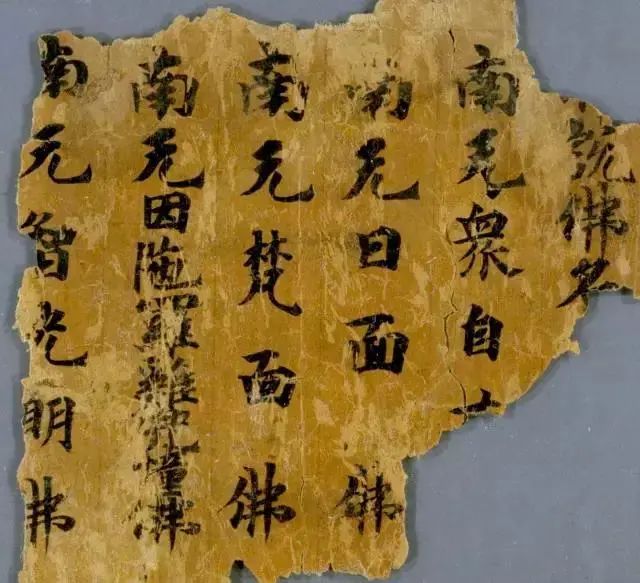 說佛名
南无衆自
南无日面佛
南无梵面佛
南无因陁羅雞兜幢佛
南无智光明佛